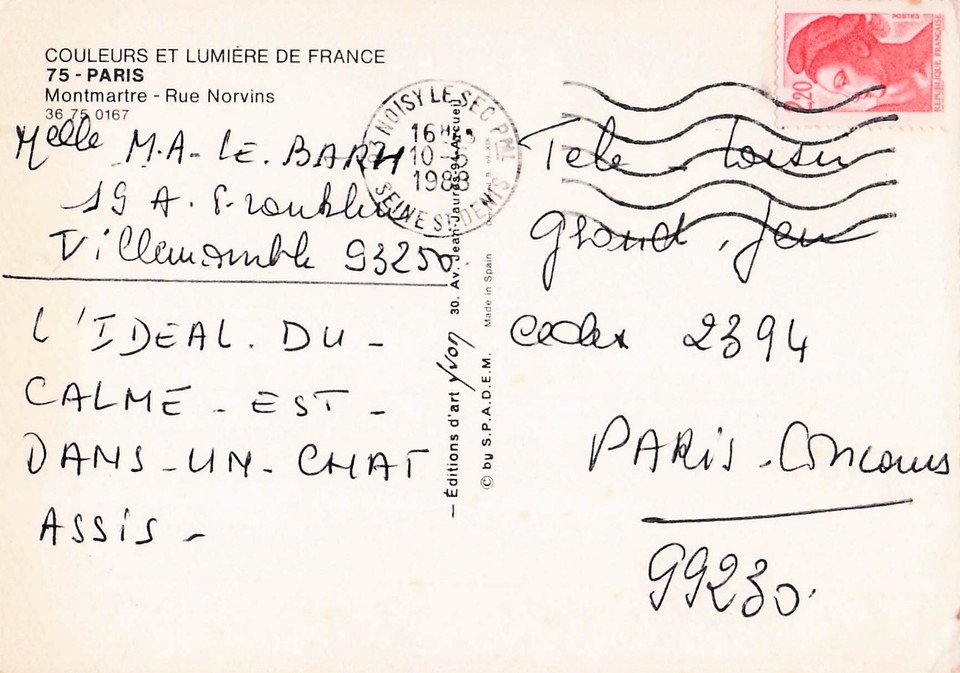 COULEURS ET LUMIÈRE DE FRANCE
75 - PARIS
Montmartre - Rue Norvins
36 75 0167
Melle M.A. LE. BARH
19 A.
Villemomble 93250.
L'IDEAL. DU -
CALME - EST -
DANS - UN - CHAT
ASSIS -
NOISY LE SEC PAL
16 H
10
1988
SEINE ST DENIS
— Éditions d'art yvon 30. Av. Jean-Jaurès. 94-Arcueil
© by S.P.A.D.E.M. Made in Spain
POSTES
2,20
REPUBLIQUE FRANÇAISE
Tele - Loisir
Grand. Jeu
Cedex 2394
PARIS - Concours
99230.